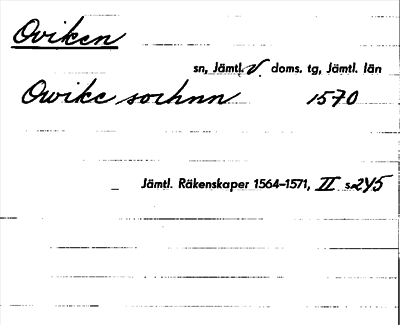 Oviken
sn, Jämtl. V. doms. tg, Jämtl. län
Owike sochnn 1570
Jämtl. Räkenskaper 1564-1571, II s. 245